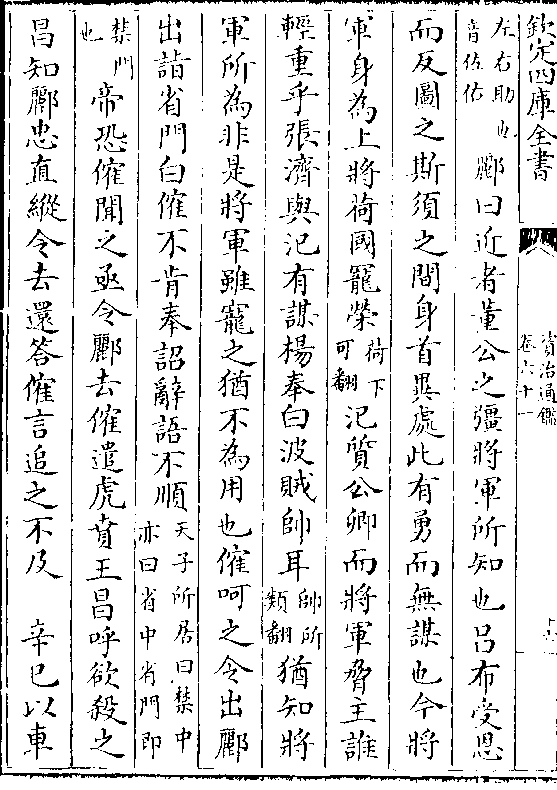 欽定四庫全書
資治通鑑
卷六十一
左右助也
音佐佑
酈曰近者董公之彊將軍所知也呂布受恩
而反圖之斯須之間身首異處此有勇而無謀也今將
軍身為上將荷國寵榮
荷下
可翻
汜質公卿而將軍脅主誰
輕重乎張濟與汜有謀楊奉白波賊帥耳
帥所
類翻
猶知將
軍所為非是將軍雖寵之猶不為用也傕呵之令出酈
出詣省門白傕不肯奉詔辭語不順
天子所居曰禁中
亦曰省中省門即
禁門
也
帝恐傕聞之亟令酈去傕遣虎賁王昌呼欲殺之
昌知酈忠直縱令去還答傕言追之不及　辛巳以車